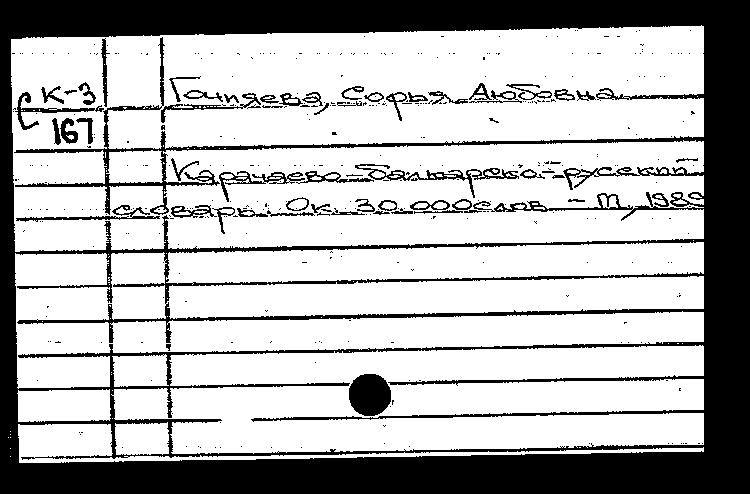 С К-3
167
Гочияева, Софья Аюбовна
Карачаево-балкарско-русский
словарь: Ок. 30.000 слов - М, 1989